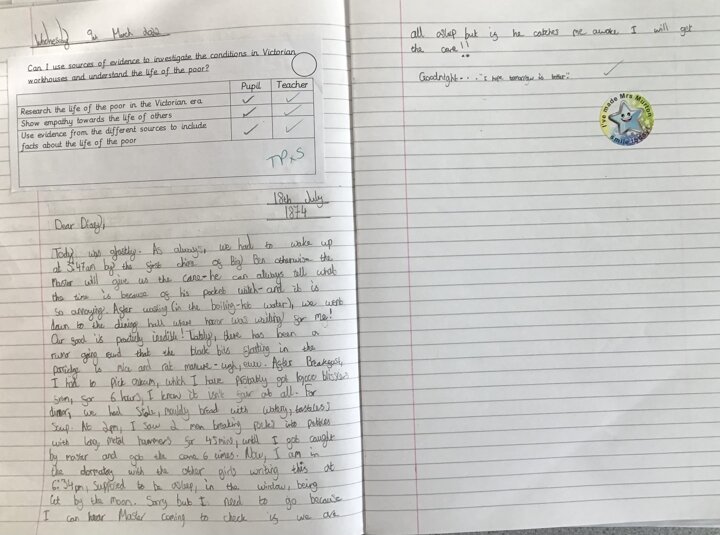 Wednesday 9th March 2022
Can I use sources of evidence to investigate the conditions in Victorian
workhouses and understand the life of the poor?
Pupil Teacher
Research the life of the poor in the Victorian era
Show empathy towards the life of others
Use evidence from the different sources to include
facts about the life of the poor
TP S
18th July
1874
Dear Diary,
Today was ghastly. As always, we had to wake up
at 5:47am by the first chime of Big Ben otherwise the
Master will give us the cane - he can always tell what
the time is because of his pocket watch - and it is
so annoying. After washing (in the boiling-hot water), we went
down to the dining hall where horror was waiting for me!
Our food is practicly inedible! Lately, there has been a
rumor going round that the black bits floating in the
porridge is mice and rat manure - ugh, eww. After Breakfast,
I had to pick oakum, which I have probably got blisters
from, for 6 hours, I know it isn't fair at all. For
dinner, we had stale, mouldy bread with watery, tasteless
soup. At 2pm, I saw 2 men breaking rocks into pebbles
with long metal hammers for 45mins, until I got caught
by master and got the cane 6 times. Now, I am in
the dormatory with the other girls writing this at
6:34pm, supposed to be asleep, in the window, being
lit by the moon. Sorry but I need to go because
I can hear Master coming to check if we are
all asleep but if he catches me awake I will get
the cane!!
Goodnight... I hope tomorrow is better!
I've made Mrs Murton smile today!